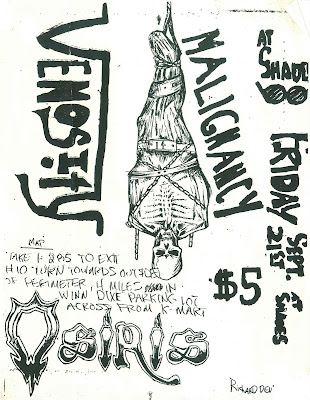 VENOSITY
MALIGNANCY
AT
SHADES
FRIDAY SEPT.
21ST AT
SHADES
$5
MAP
TAKE I-285 TO EXIT
#10 TURN TOWARDS OUTSIDE
OF PERIMETER, 4 MILES IN
WINN DIXIE PARKING LOT
ACROSS FROM K-MART
OSIRIS
RICHARD